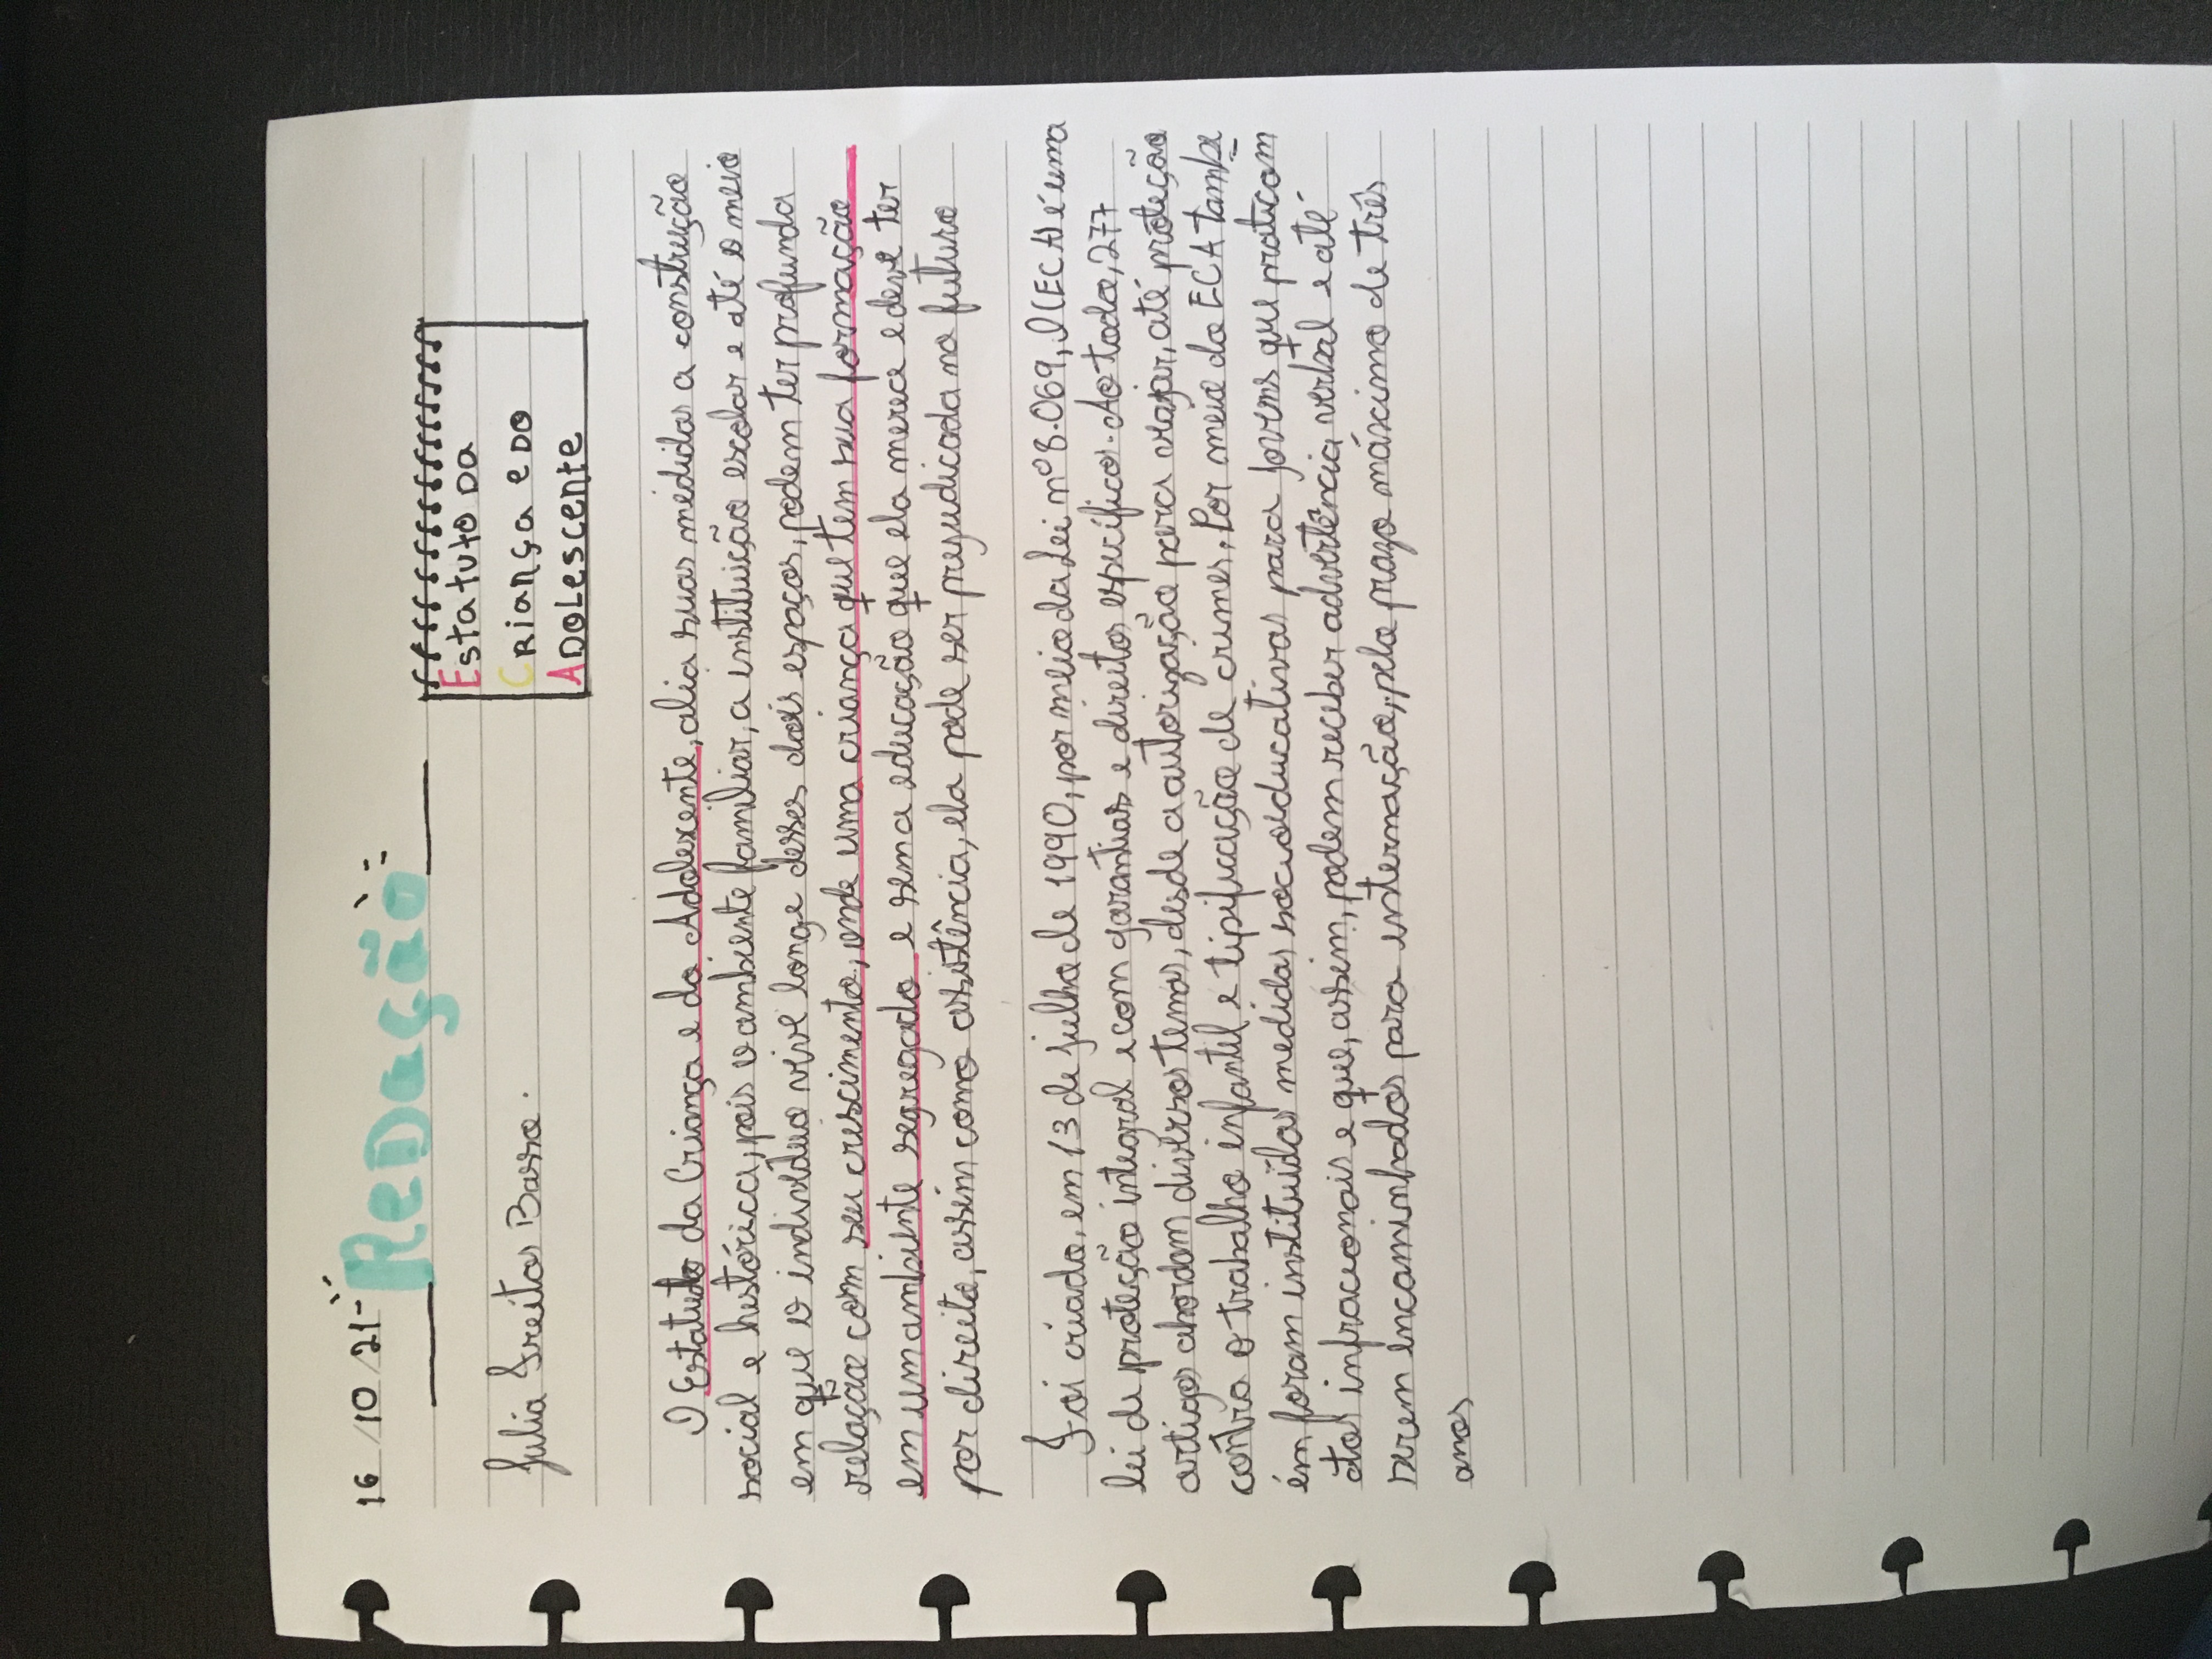 16 /10 /21
Redação
Estatuto da
Criança e do
Adolescente
Julia Freitas Basso.
O Estatuto da Criança e do Adolescente, alia suas medidas a construção
social e histórica, pois o ambiente familiar, a instituição escolar e até o meio
em que o indivíduo vive longe desses dois espaços, podem ter profunda
relação com seu crescimento, onde uma criança que tem sua formação
em um ambiente segregado e sem a educação que ela merece e deve ter
por direito, assim como assistência, ela pode ser prejudicada no futuro
Foi criado, em 13 de julho de 1990, por meio da Lei nº 8.069, O (ECA) é uma
lei de proteção integral e com garantias e direitos específicos. Ao todo, 277
artigos abordam diversos temas, desde a autorização para viajar, até proteção
contra o trabalho infantil e tipificação de crimes. Por meio do ECA tambe
ém foram instituídas medidas socioeducativas para jovens que praticam
atos infracionais e que, assim, podem receber advertência verbal e até
serem encaminhados para internação, pelo prazo máximo de três
anos